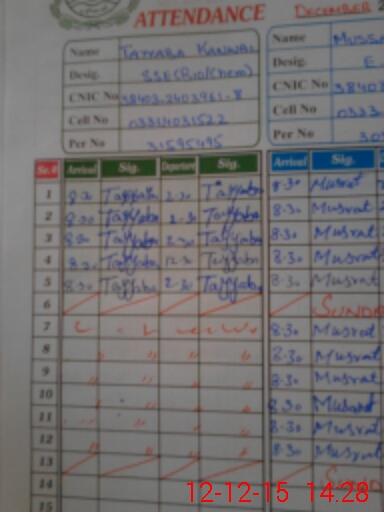 ATTENDANCE
DECEMBER
Name TAYYABA KANWAL
Desig. SSE(Bio/Chem)
CNIC No 38403-2403961-8
Cell No 03314031522
Per No 31595495
Name
Desig.
CNIC No 3840
Cell No 0333
Per No 30
Sr.# Arrival Sig. Departure Sig. Arrival Sig.
1 Tayyaba 2-30 Tayyaba 8-30 Musrat
2 8-30 Tayyaba 2-30 Tayyaba 8-30 Musrat
3 8-30 Tayyaba 2-30 Tayyaba 8-30 Musrat
4 8-30 Tayyaba 12-30 Tayyaba 8-30 Musrat
5 8-30 Tayyaba 2-30 Tayyaba 8-30 Musrat
6
7 8-30 Musrat
8 8-30 Musrat
9 8-30 Musrat
10 8-30 Musrat
11 8-30 Musrat
12 8-30 Musrat
13
14
15
12-12-15 14:28